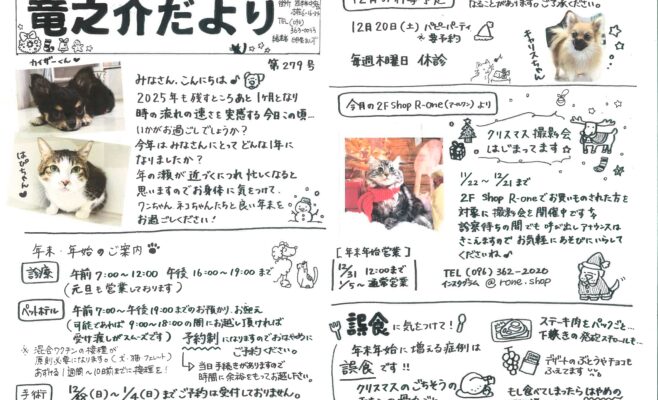 竜之介だより
第279号
カイザーくん
はぴちゃん
みなさん、こんにちは♪
2025年も残すところあと1ヶ月となり
時の流れの速さを実感する今日この頃…
いかがお過ごしでしょうか？
今年はみなさんにとってどんな1年に
なりましたか？
年の瀬が近づくにつれ忙しくなると
思いますのでお身体に気をつけて、
ワンちゃん ネコちゃんたちと良い年末を
お過ごしください！
年末・年始のご案内
診療
午前7:00～12:00 午後16:00～19:00まで
(元旦も営業しております)
ペットホテル
午前7:00～午後19:00までのお預かり、お迎え
(可能であれば9:00～18:00の間にお越し頂ければ
受け渡しがスムーズです)
予約制になりますのでお早めに
ご予約ください。
※混合ワクチンの接種が
原則必要になります。(犬・猫・フェレット)
あずける1週間～10日前までに接種を！
当日手続きがありますので
時間に余裕をもってお越し下さい。
手術
(日)～1/4(日)までご予約は受付しておりません。
なることがあります。ご了承ください。
12月20日(土) パピーパーティ
※要予約
毎週木曜日 休診
チャリスちゃん
今月の2F Shop R-one(アールワン)より
クリスマス撮影会
はじまってます☆
11/22～12/21まで
2F Shop R-oneでお買いものされた方を
対象に撮影会を開催中です
診察待ちの間でも呼び出しアナウンスは
きこえますので お気軽にあそびにいらして
くださいね♪
[年末年始営業]
12/31 12:00まで
1/5～通常営業
TEL (096) 362-2020
インスタグラム @rone.shop
誤食に気をつけて！
年末年始に増える症例は
誤食です!!
クリスマスのごちそうの
ステーキ肉をパックごと…
下敷きの発泡スチロールも…
デザートのぶどうやチョコも
ふえてます
もし食べてしまったらはやめの